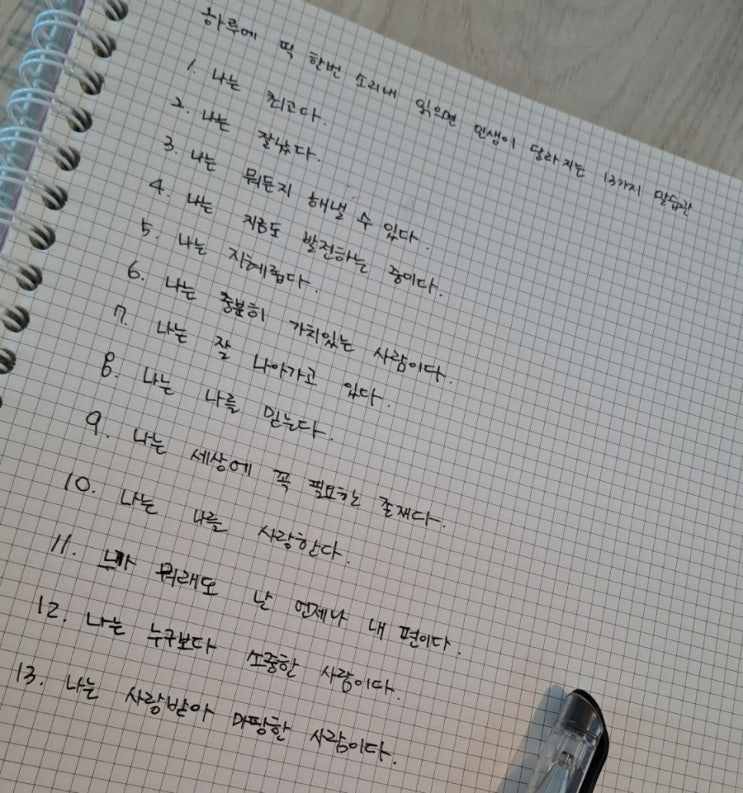 하루에 딱 한번 소리내 읽으면 인생이 달라지는 13가지 말습관
1. 나는 최고다.
2. 나는 잘났다.
3. 나는 뭐든지 해낼 수 있다.
4. 나는 지금도 발전하는 중이다.
5. 나는 지혜롭다.
6. 나는 충분히 가치있는 사람이다.
7. 나는 잘 나아가고 있다.
8. 나는 나를 믿는다.
9. 나는 세상에 꼭 필요한 존재다.
10. 나는 나를 사랑한다.
11. 누가 뭐래도 난 언제나 내 편이다.
12. 나는 누구보다 소중한 사람이다.
13. 나는 사랑받아 마땅한 사람이다.